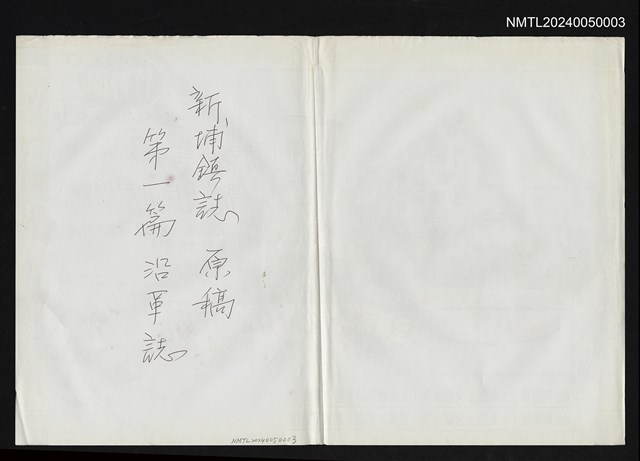 NMTL20240050003
新埔鎮誌 原稿
第一篇 沿革誌
NMTL20240050003